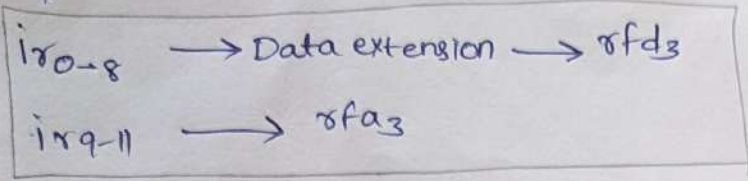 ir0-8 → Data extension → rfd3
ir9-11 → rfa3